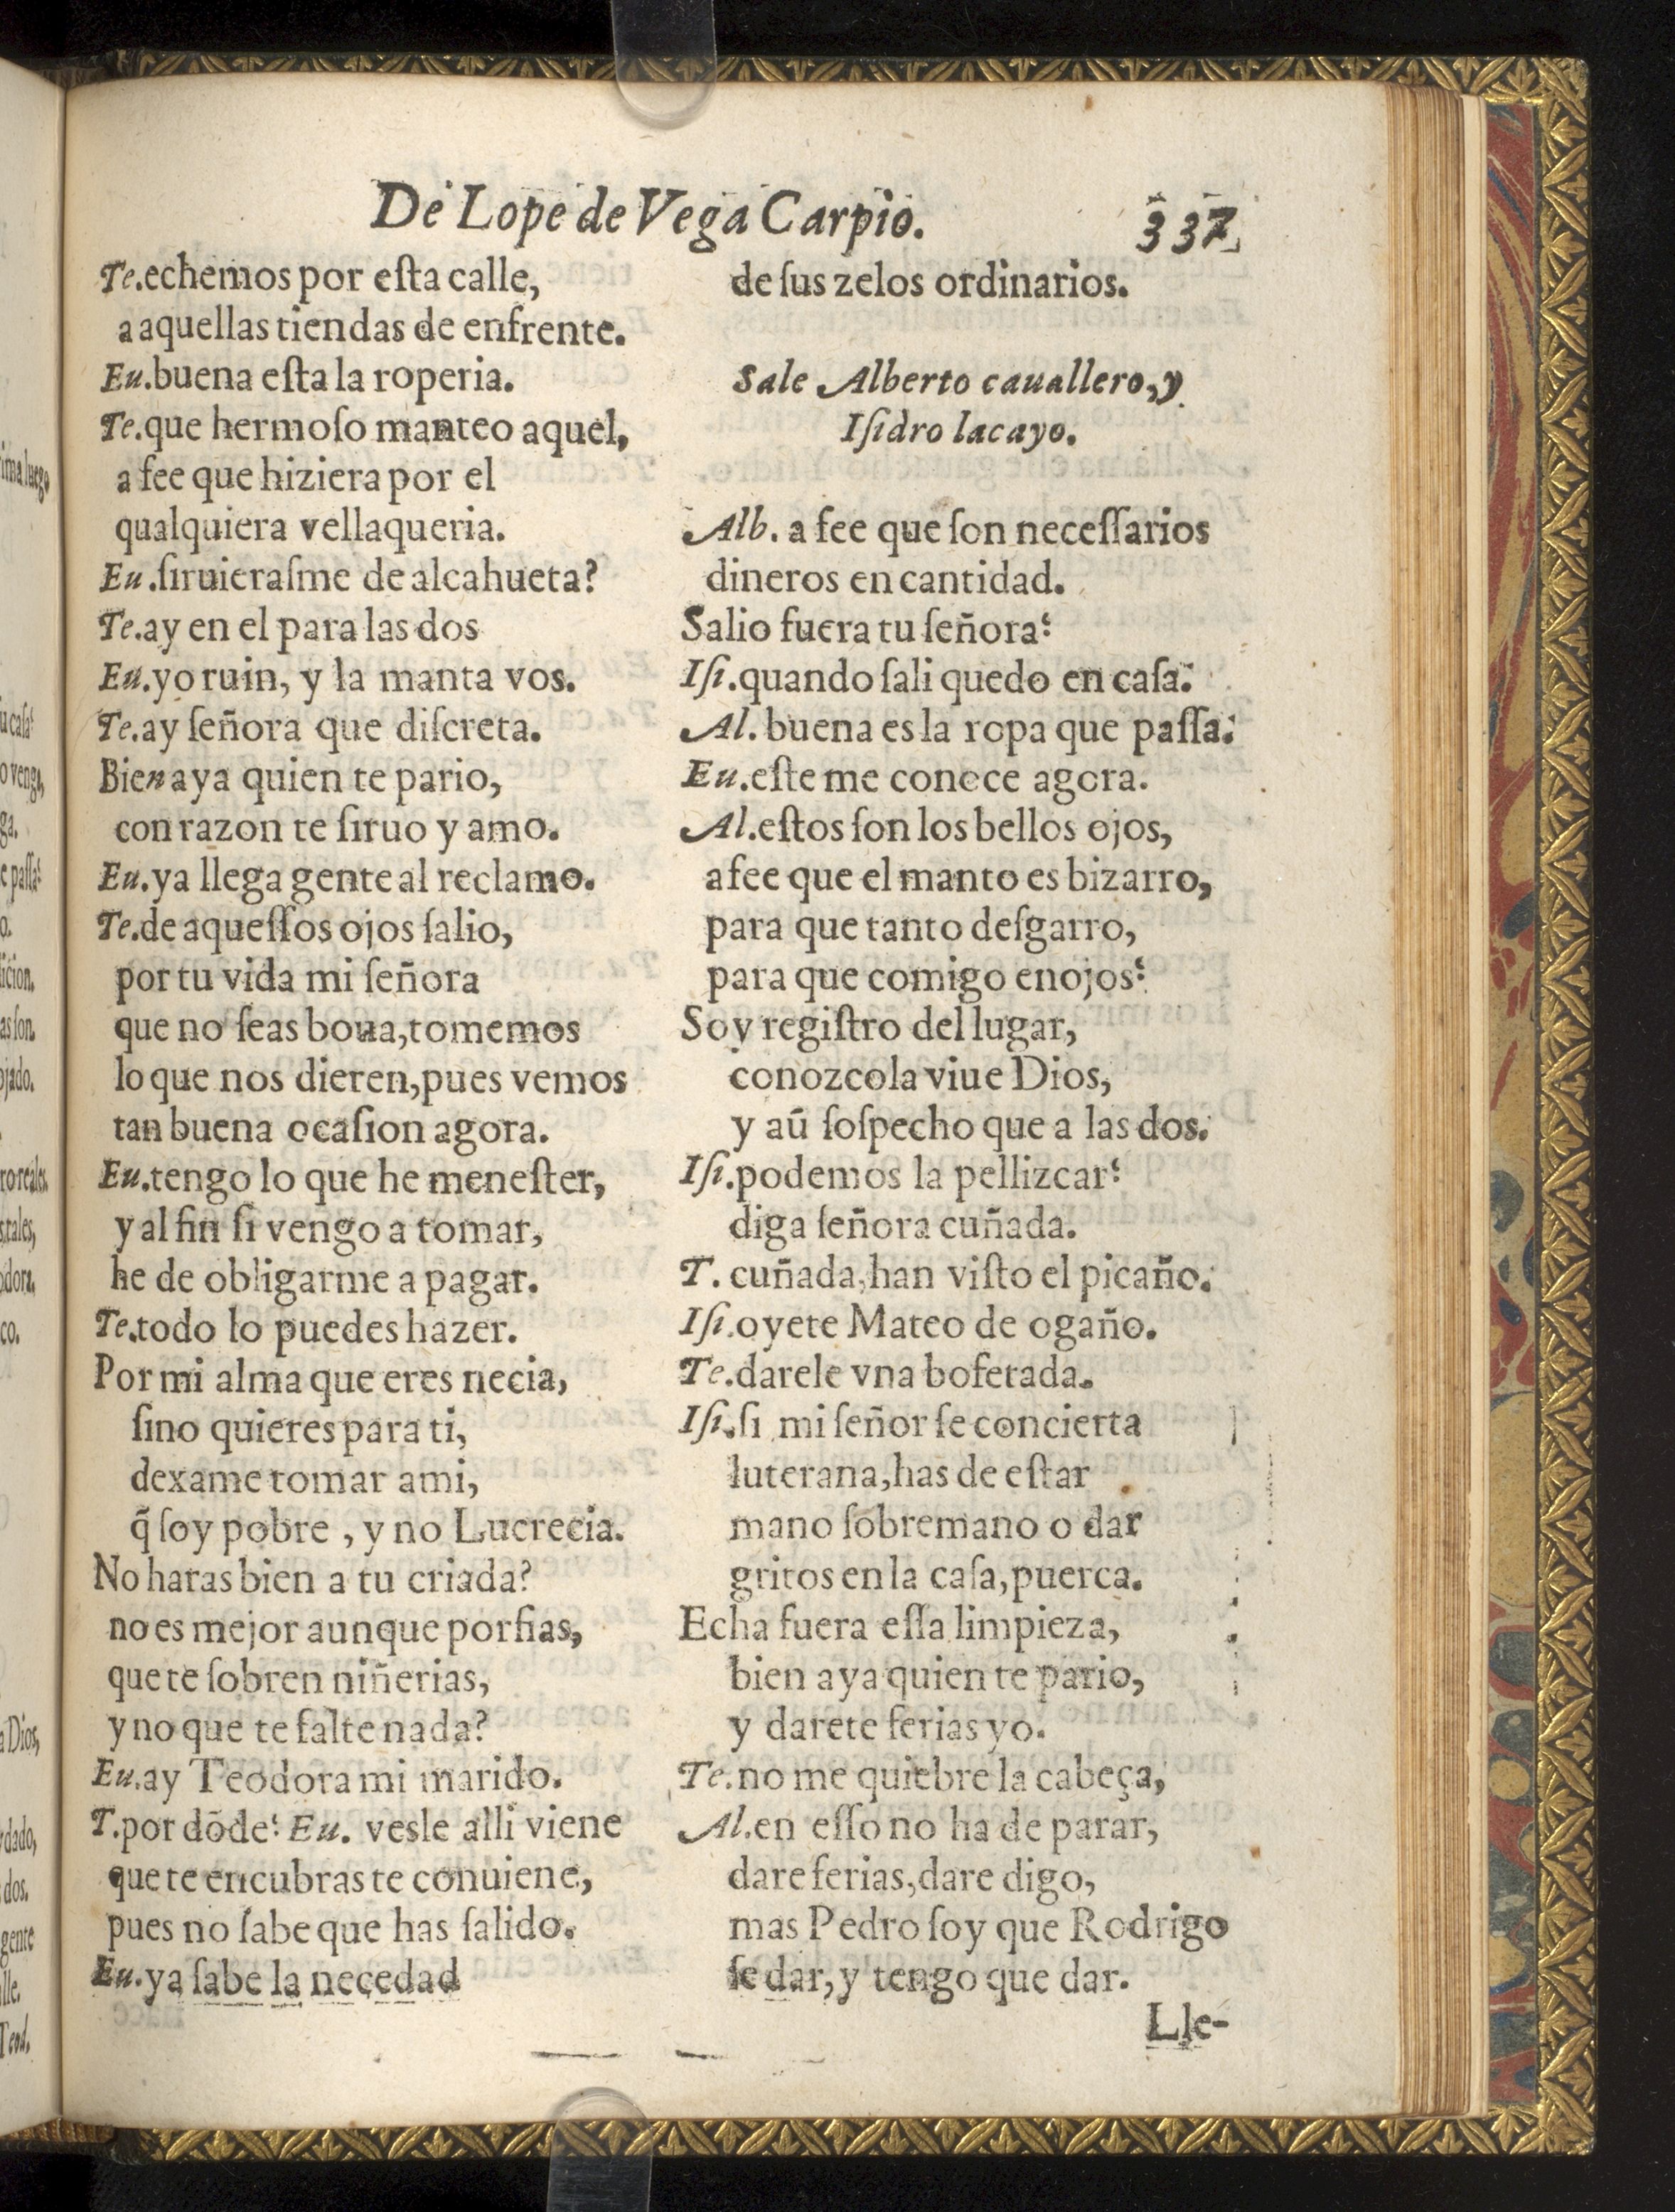 De Lope de Vega Carpio. 337
Te.echemos por eſta calle,
a aquellas tiendas de enfrente.
Eu.buena eſta la roperia.
Te.que hermoſo manteo aquel,
a fee que hiziera por el
qualquiera vellaqueria.
Eu.ſiruieraſme de alcahueta?
Te.ay en el para las dos
Eu.yo ruin, y la manta vos.
Te.ay ſeñora que diſcreta.
Bien aya quien te pario,
con razon te ſiruo y amo.
Eu.ya llega gente al reclamo.
Te.de aqueſſos ojos ſalio,
por tu vida mi ſeñora
que no ſeas boua,tomemos
lo que nos dieren,pues vemos
tan buena ocaſion agora.
Eu.tengo lo que he meneſter,
y al fin ſi vengo a tomar,
he de obligarme a pagar.
Te.todo lo puedes hazer.
Por mi alma que eres necia,
ſino quieres para ti,
dexame tomar ami,
q̃ ſoy pobre , y no Lucrecia.
No haras bien a tu criada?
no es mejor aunque porfias,
que te ſobren niñerias,
y no que te falte nada?
Eu.ay Teodora mi marido.
T.por dõde? Eu. vesle alli viene
que te encubras te conuiene,
pues no ſabe que has ſalido.
Eu.ya ſabe la necedad
de ſus zelos ordinarios.
Sale Alberto cauallero,y
Iſidro lacayo.
Alb. a fee que ſon neceſſarios
dineros en cantidad.
Salio fuera tu ſeñora?
Iſi.quando ſali quedo en caſa.
Al. buena es la ropa que paſſa.
Eu.eſte me conoce agora.
Al.eſtos ſon los bellos ojos,
a fee que el manto es bizarro,
para que tanto deſgarro,
para que comigo enojos?
Soy regiſtro del lugar,
conozcola viue Dios,
y aũ ſoſpecho que a las dos.
Iſi.podemos la pellizcar?
diga ſeñora cuñada.
T. cuñada,han viſto el picaño.
Iſi.oyete Mateo de ogaño.
Te.darele vna bofetada.
Iſi.ſi mi ſeñor ſe concierta
luterana,has de eſtar
mano ſobremano o dar
gritos en la caſa,puerca.
Echa fuera eſſa limpieza,
bien aya quien te pario,
y darete ferias yo.
Te.no me quiebre la cabeça,
Al.en eſſo no ha de parar,
dare ferias,dare digo,
mas Pedro ſoy que Rodrigo
ſe dar,y tengo que dar.
Lle-